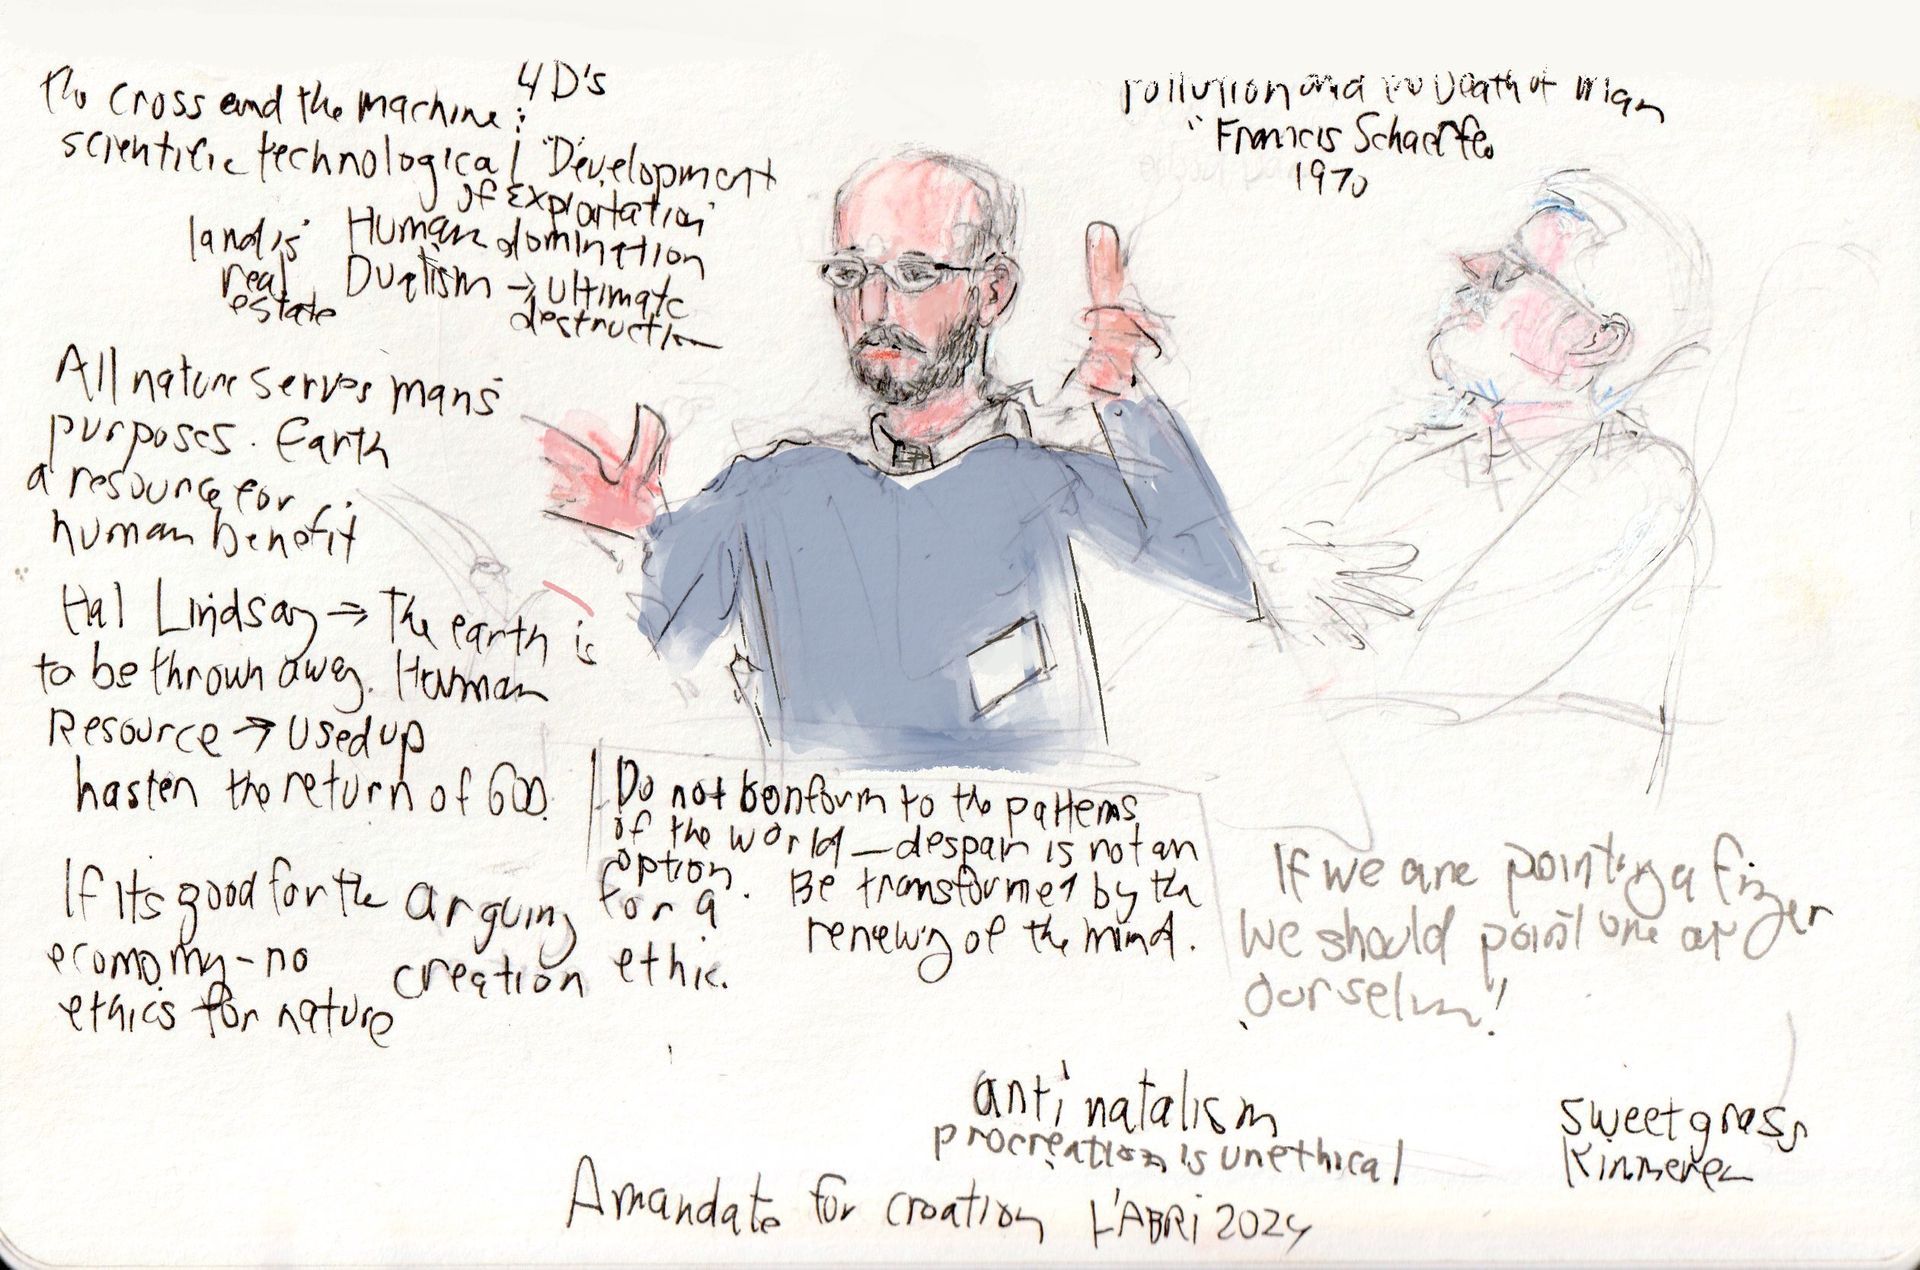 4 D's
The Cross and the machine :
scientific technological "Development
of Exploitation"
land is Human domination
real Dualism → ultimate
estate destruction
All nature serves mans
purposes. Earth
a resource for
human benefit
Hal Lindsay → The earth is
to be thrown away. Human
Resource → used up
hasten the return of GOD.
If its good for the
economy - no
ethics for nature
arguing for a
creation ethic.
Do not conform to the patterns
of the world — despair is not an
option. Be transformed by the
renewing of the mind.
Pollution and the Death of Man
"Francis Schaeffer
1970
If we are pointing a finger
we should point one at
ourselves!
anti natalism
procreation is unethical
sweetgrass
A mandate for creation L'ABRI 2024